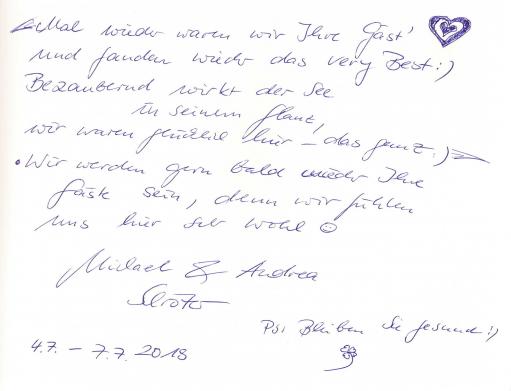 Mal wieder waren wir Ihre Gäst'
und fanden wieder das very Best :)
Bezaubernd wirkt der See
in seinem Glanz,
wir waren hier – das ganz :)
• Wir werden gern bald wieder Ihre
Gäste sein, denn wir fühlen
uns hier sehr wohl ☺
Michael & Andrea
Ps: Bleiben Sie gesund :)
4.7. – 7.7.2018